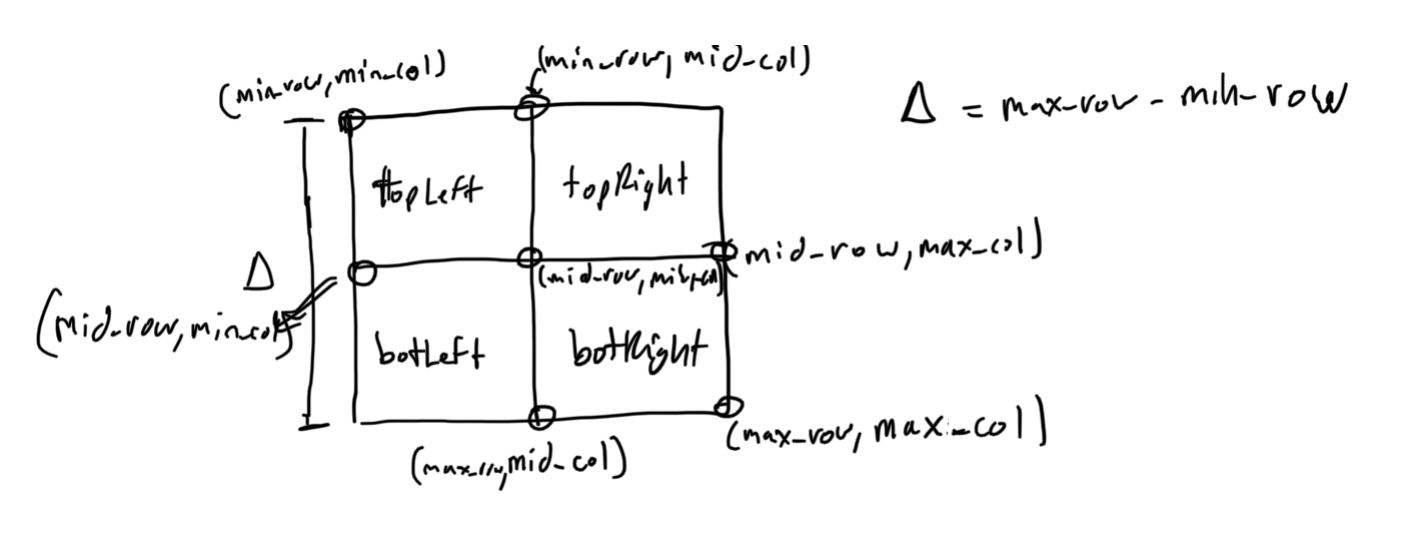 (min_row, min_col)
(min_row, mid_col)
Δ = max_row - min_row
topLeft
topRight
mid_row, max_col)
Δ
(mid_row, min_col)
(mid_row,
botLeft
botRight
(max_row, max_col)
mid_col)